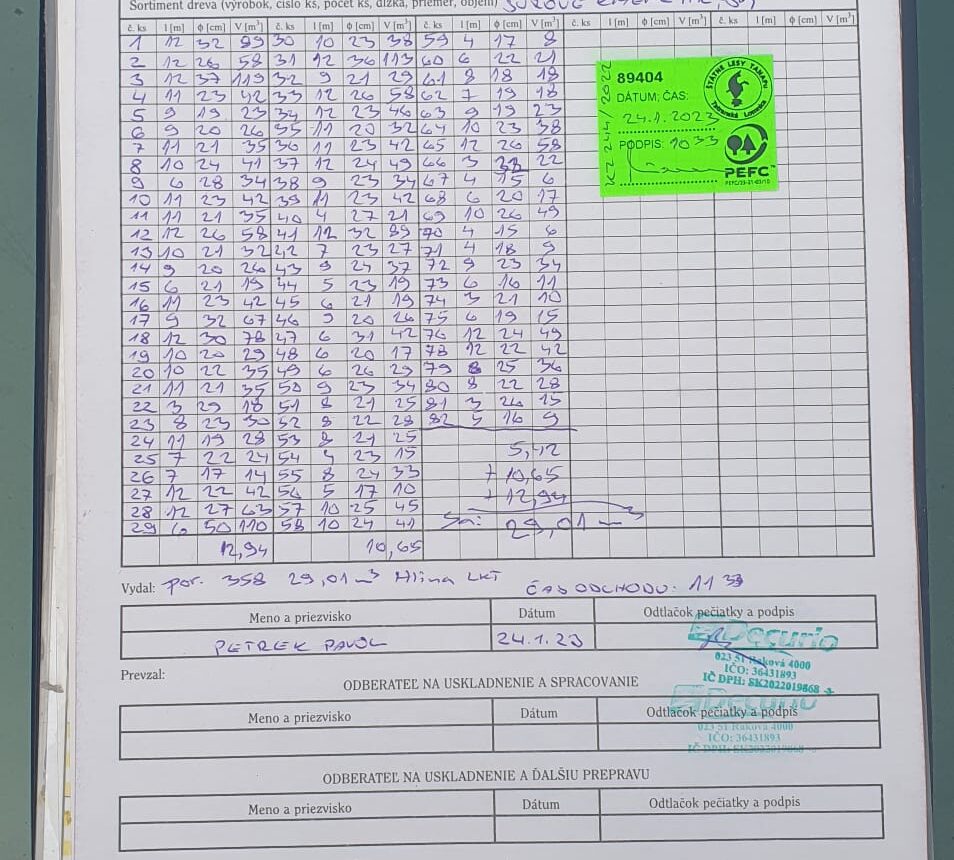 Sortiment dreva (výrobok, číslo ks, počet ks, dĺžka, priemer, objem)
č. ks l [m] ϕ [cm] V [m³] č. ks l [m] ϕ [cm] V [m³] č. ks l [m] ϕ [cm] V [m³] č. ks l [m] ϕ [cm] V [m³] č. ks l [m] ϕ [cm] V [m³]
1 12 32 89 30 10 23 38 59 4 17 8
2 12 26 58 31 12 36 113 60 6 22 21
3 12 37 119 32 9 21 29 61 8 18 18
4 11 23 42 33 12 26 58 62 7 19 18
5 9 19 23 34 12 23 46 63 9 19 23
6 9 20 26 35 11 20 32 64 10 23 38
7 11 21 35 36 11 23 42 65 12 26 58
8 10 24 41 37 12 24 49 66 3 22
9 6 28 34 38 9 23 34 67 4 15 6
10 11 23 42 39 11 23 42 68 6 20 17
11 11 21 35 40 4 27 21 69 10 26 49
12 12 26 58 41 12 32 89 70 4 15 6
13 10 21 32 42 7 23 27 71 4 18 9
14 9 20 26 43 9 24 37 72 9 23 34
15 6 21 19 44 5 23 19 73 6 16 11
16 11 23 42 45 6 21 19 74 3 21 10
17 9 32 67 46 9 20 26 75 6 19 15
18 12 30 78 47 6 31 42 76 12 24 49
19 10 20 29 48 6 20 17 78 12 22 42
20 10 22 35 49 6 26 29 79 8 25 36
21 11 21 35 50 9 23 34 80 8 22 28
22 3 29 18 51 8 21 25 81 3 26 15
23 8 23 30 52 8 22 28 82 5 16 9
24 11 19 28 53 8 21 25
25 7 22 24 54 4 23 15 5,42
26 7 17 14 55 8 24 33 + 10,65
27 12 22 42 56 5 17 10 + 12,94
28 12 27 63 57 10 25 45
29 6 50 110 58 10 24 41 29,01 m³
12,94 10,65
89404
DÁTUM; ČAS:
24.1.2023
PODPIS: 10 33
KZ 244/2022
ŠTÁTNE LESY TANAPU
Tatranská Lomnica
PEFC™
Vydal: por. 358 29,01 m³ Hlina LKT ČAS ODCHODU: 11 33
Meno a priezvisko Dátum Odtlačok pečiatky a podpis
PETREK PAVOL 24.1.23
Decurio
023 51 Raková 4000
IČO: 36431893
IČ DPH: SK2022019868
Prevzal:
ODBERATEĽ NA USKLADNENIE A SPRACOVANIE
Meno a priezvisko Dátum Odtlačok pečiatky a podpis
Decurio
023 51 Raková 4000
IČO: 36431893
IČ DPH: SK2022019868
ODBERATEĽ NA USKLADNENIE A ĎALŠIU PREPRAVU
Meno a priezvisko Dátum Odtlačok pečiatky a podpis